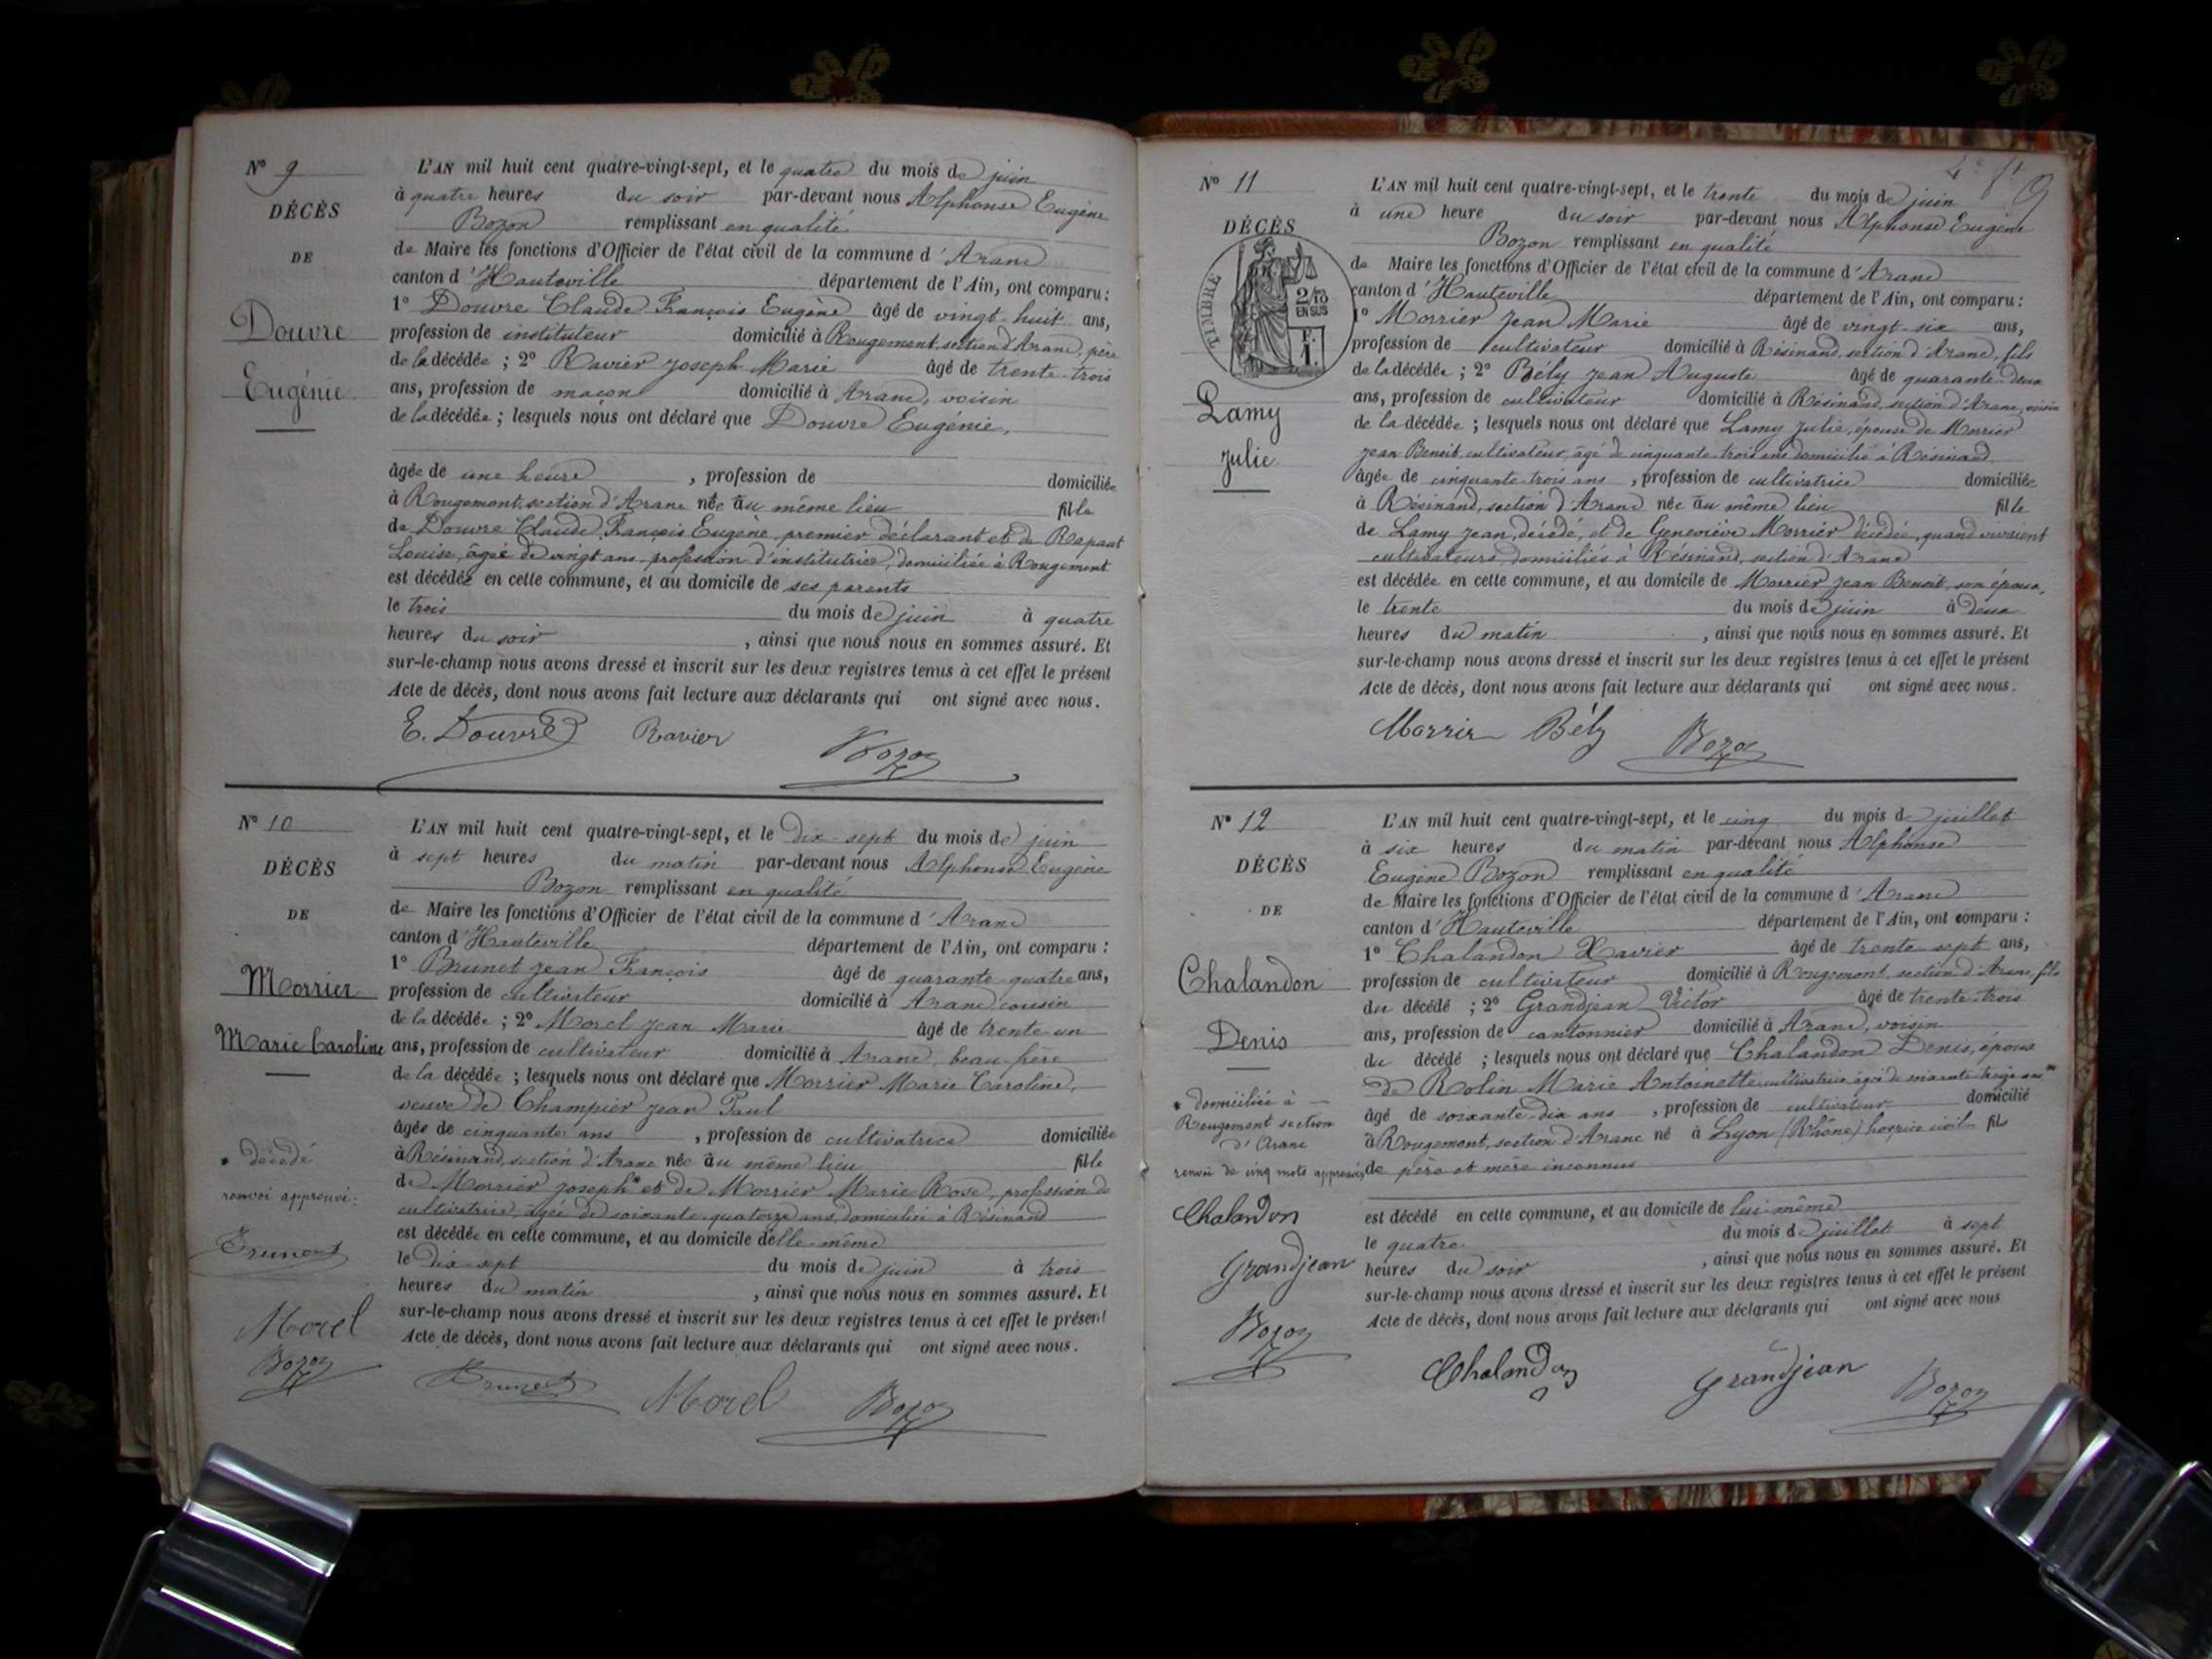 N° 9
DÉCÈS
DE
Douvre
Eugénie
L'AN mil huit cent quatre-vingt-sept, et le quatre du mois de juin
à quatre heures du soir par-devant nous Alphonse Eugène
Bozon remplissant en qualité
de Maire les fonctions d'Officier de l'état civil de la commune d'Aranc
canton d'Hauteville département de l'Ain, ont comparu :
1° Douvre Claude François Eugène âgé de vingt-huit ans,
profession de instituteur domicilié à Rougemont, section d'Aranc, père
de la décédée ; 2° Ravier Joseph Marie âgé de trente-trois
ans, profession de maçon domicilié à Aranc, voisin
de la décédée ; lesquels nous ont déclaré que Douvre Eugénie,
âgée de une heure , profession de domiciliée
à Rougemont, section d'Aranc née au même lieu fille
de Douvre Claude François Eugène, premier déclarant et de
Louise, âgée de vingt ans, profession d'institutrice, domiciliée à Rougemont
est décédée en cette commune, et au domicile de ses parents
le trois du mois de juin à quatre
heures du soir , ainsi que nous nous en sommes assuré. Et
sur-le-champ nous avons dressé et inscrit sur les deux registres tenus à cet effet le présent
Acte de décès, dont nous avons fait lecture aux déclarants qui ont signé avec nous.
E. Douvre Ravier Bozon
N° 10
DÉCÈS
DE
Morrier
Marie Caroline
* décédé
renvoi approuvé :
Brunet
Morel
Bozon
L'AN mil huit cent quatre-vingt-sept, et le dix-sept du mois de juin
à sept heures du matin par-devant nous Alphonse Eugène
Bozon remplissant en qualité
de Maire les fonctions d'Officier de l'état civil de la commune d'Aranc
canton d'Hauteville département de l'Ain, ont comparu :
1° Brunet Jean François âgé de quarante-quatre ans,
profession de cultivateur domicilié à Aranc, cousin
de la décédée ; 2° Morel Jean Marie âgé de trente-un
ans, profession de cultivateur domicilié à Aranc, beau-frère
de la décédée ; lesquels nous ont déclaré que Morrier Marie Caroline,
veuve de Champier Jean Paul
âgée de cinquante ans , profession de cultivatrice domiciliée
à Résinand, section d'Aranc née au même lieu fille
de Morrier Joseph* et de Morrier Marie Rose, profession de
cultivatrice, âgée de soixante-quatorze ans, domiciliée à Résinand
est décédée en cette commune, et au domicile d'elle-même
le dix-sept du mois de juin à trois
heures du matin , ainsi que nous nous en sommes assuré. Et
sur-le-champ nous avons dressé et inscrit sur les deux registres tenus à cet effet le présent
Acte de décès, dont nous avons fait lecture aux déclarants qui ont signé avec nous.
Brunet Morel Bozon
9
N° 11
DÉCÈS
TIMBRE
2/10
EN SUS
F.
1.
Lamy
Julie
L'AN mil huit cent quatre-vingt-sept, et le trente du mois de juin
à une heure du soir par-devant nous Alphonse Eugène
Bozon remplissant en qualité
de Maire les fonctions d'Officier de l'état civil de la commune d'Aranc
canton d'Hauteville département de l'Ain, ont comparu :
1° Morrier Jean Marie âgé de vingt-six ans,
profession de cultivateur domicilié à Résinand, section d'Aranc, fils
de la décédée ; 2° Bély Jean Auguste âgé de quarante-deux
ans, profession de cultivateur domicilié à Résinand, section d'Aranc, voisin
de la décédée ; lesquels nous ont déclaré que Lamy Julie, épouse de Morrier
Jean Benoit, cultivateur, âgé de cinquante-trois ans domicilié à Résinand
âgée de cinquante-trois ans , profession de cultivatrice domiciliée
à Résinand, section d'Aranc née au même lieu fille
de Lamy Jean, décédé, et de Geneviève Morrier décédée, quand vivaient
cultivateurs, domiciliés à Résinand, section d'Aranc
est décédée en cette commune, et au domicile de Morrier Jean Benoit, son époux,
le trente du mois de juin à deux
heures du matin , ainsi que nous nous en sommes assuré. Et
sur-le-champ nous avons dressé et inscrit sur les deux registres tenus à cet effet le présent
Acte de décès, dont nous avons fait lecture aux déclarants qui ont signé avec nous.
Morrier Bély Bozon
N° 12
DÉCÈS
DE
Chalandon
Denis
* domiciliée à
Rougemont section
d'Aranc
renvoi de cinq mots approuvés
Chalandon
Grandjean
Bozon
L'AN mil huit cent quatre-vingt-sept, et le cinq du mois de juillet
à six heures du matin par-devant nous Alphonse
Eugène Bozon remplissant en qualité
de Maire les fonctions d'Officier de l'état civil de la commune d'Aranc
canton d'Hauteville département de l'Ain, ont comparu :
1° Chalandon Xavier âgé de trente-sept ans,
profession de cultivateur domicilié à Rougemont, section d'Aranc, fils
du décédé ; 2° Grandjean Victor âgé de trente-trois
ans, profession de cantonnier domicilié à Aranc, voisin
du décédé ; lesquels nous ont déclaré que Chalandon Denis, époux
de Rolin Marie Antoinette cultivatrice âgée de soixante-treize ans*
âgé de soixante-dix ans , profession de cultivateur domicilié
à Rougemont, section d'Aranc né à Lyon (Rhône) hospice civil fils
de père et mère inconnus
est décédé en cette commune, et au domicile de lui-même
le quatre du mois de juillet à sept
heures du soir , ainsi que nous nous en sommes assuré. Et
sur-le-champ nous avons dressé et inscrit sur les deux registres tenus à cet effet le présent
Acte de décès, dont nous avons fait lecture aux déclarants qui ont signé avec nous
Chalandon Grandjean Bozon